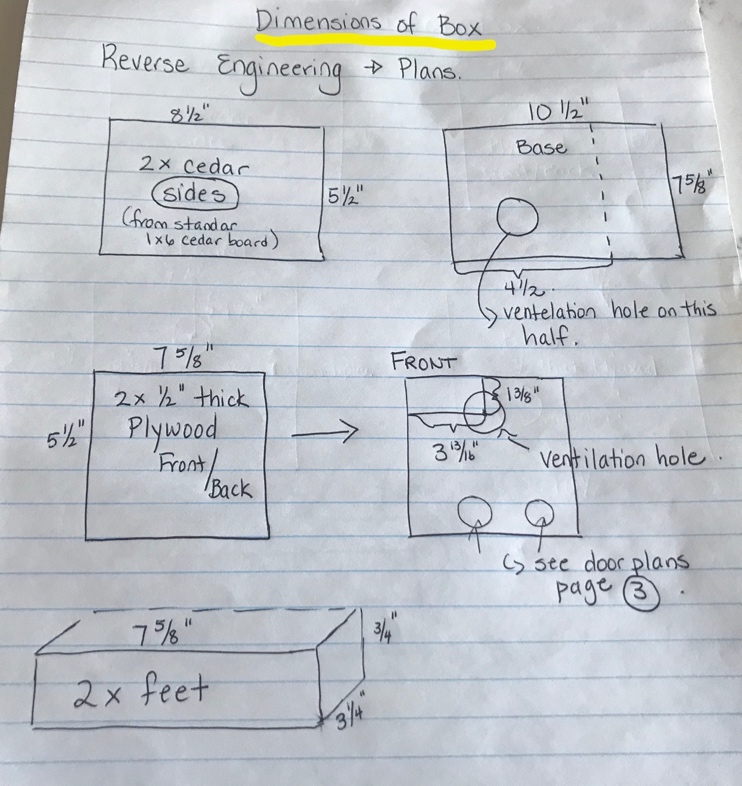 Dimensions of Box
Reverse Engineering → Plans.
8 1/2"
2x cedar
sides
(from standar
1x6 cedar board)
5 1/2"
10 1/2"
Base
7 5/8"
4 1/2
ventelation hole on this
half.
7 5/8"
2x 1/2" thick
Plywood
Front/
Back
5 1/2"
FRONT
1 3/8"
3 13/16"
ventilation hole.
see door plans
page 3.
7 5/8"
3/4"
2x feet
3 1/4"